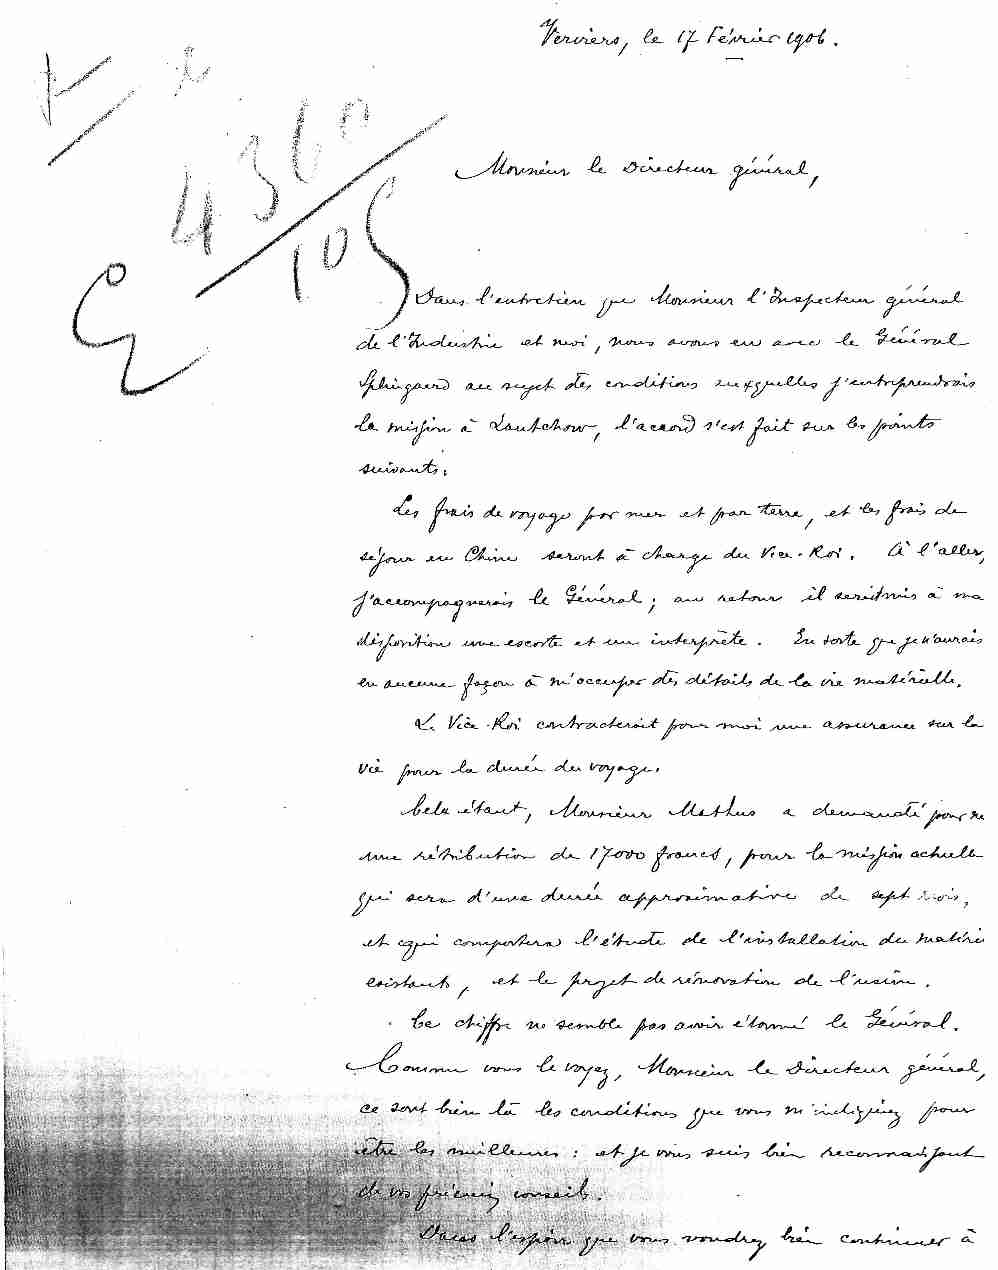 Verviers, le 17 Février 1906.
4360
105
Monsieur le Directeur général,
Dans l'entretien que Monsieur l'Inspecteur général
de l'Industrie et moi, nous avons eu avec le Général
Splingaerd au sujet des conditions auxquelles j'entreprendrais
la mission à Lantchow, l'accord s'est fait sur les points
suivants.
Les frais de voyage par mer et par terre, et les frais de
séjour en Chine seront à charge du Vice-Roi. À l'aller,
j'accompagnerais le Général; au retour il serait mis à ma
disposition une escorte et un interprète. En sorte que je n'aurais
en aucune façon à m'occuper des détails de la vie matérielle.
Le Vice-Roi contracterait pour moi une assurance sur la
vie pour la durée du voyage.
Cela étant, Monsieur Mathus a demandé pour
une rétribution de 17000 francs, pour la mission actuelle
qui sera d'une durée approximative de sept mois,
et qui comportera l'étude de l'installation du matériel
existants, et le projet de rénovation de l'usine.
Ce chiffre ne semble pas avoir étonné le Général.
Comme vous le voyez, Monsieur le Directeur général,
ce sont bien là les conditions que vous m'indiquiez pour
être les meilleures : et je vous suis bien reconnaissant
de vos précieux conseils.
Dans l'espoir que vous voudrez bien continuer à